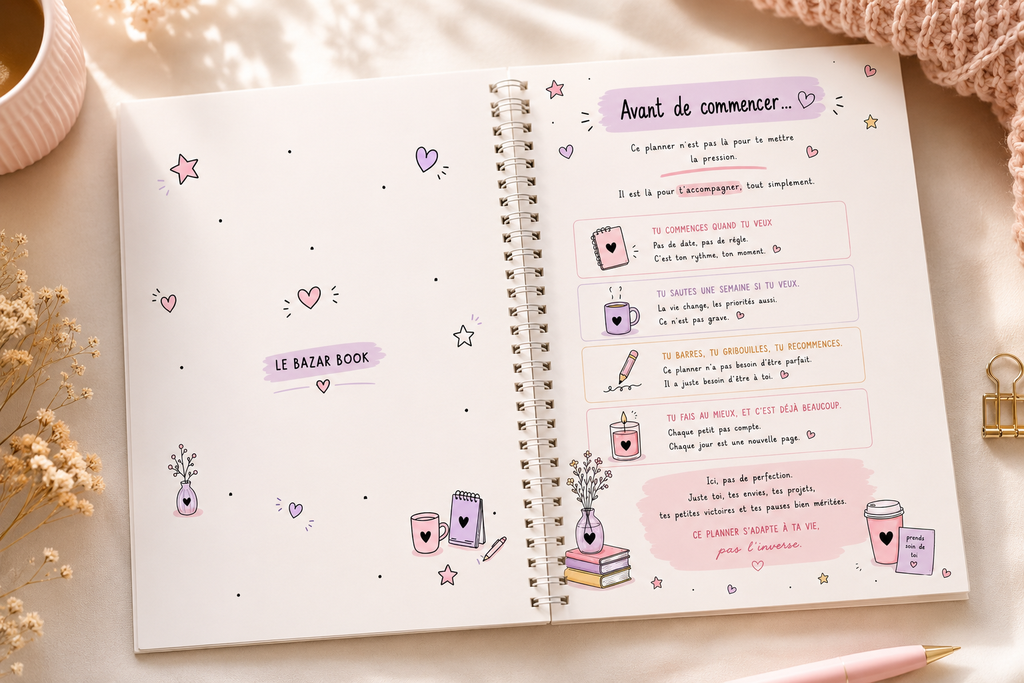 LE BAZAR BOOK
Avant de commencer...
Ce planner n'est pas là pour te mettre
la pression.
Il est là pour t'accompagner, tout simplement.
TU COMMENCES QUAND TU VEUX
Pas de date, pas de règle.
C'est ton rythme, ton moment.
TU SAUTES UNE SEMAINE SI TU VEUX.
La vie change, les priorités aussi.
Ce n'est pas grave.
TU BARRES, TU GRIBOUILLES, TU RECOMMENCES.
Ce planner n'a pas besoin d'être parfait.
Il a juste besoin d'être à toi.
TU FAIS AU MIEUX, ET C'EST DÉJÀ BEAUCOUP.
Chaque petit pas compte.
Chaque jour est une nouvelle page.
Ici, pas de perfection.
Juste toi, tes envies, tes projets,
tes petites victoires et tes pauses bien méritées.
CE PLANNER S'ADAPTE À TA VIE,
pas l'inverse.
prends
soin de
toi